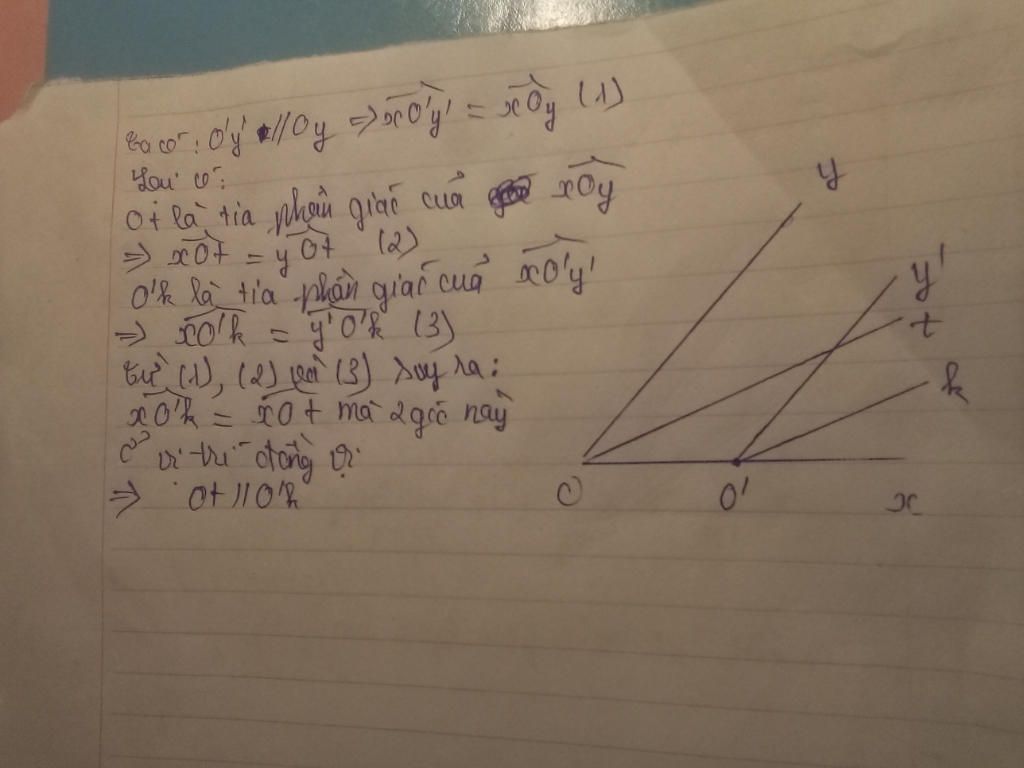 Ta có: O'y' // Oy => xO'y' = xOy (1)
Lại có:
Ot là tia phân giác của xOy
=> xOt = yOt (2)
O'k là tia phân giác của xO'y'
=> xO'k = y'O'k (3)
Từ (1), (2) và (3) suy ra:
xO'k = xOt mà 2 góc này
ở vị trí đồng vị
=> Ot // O'k
y
y'
t
k
O
O'
x